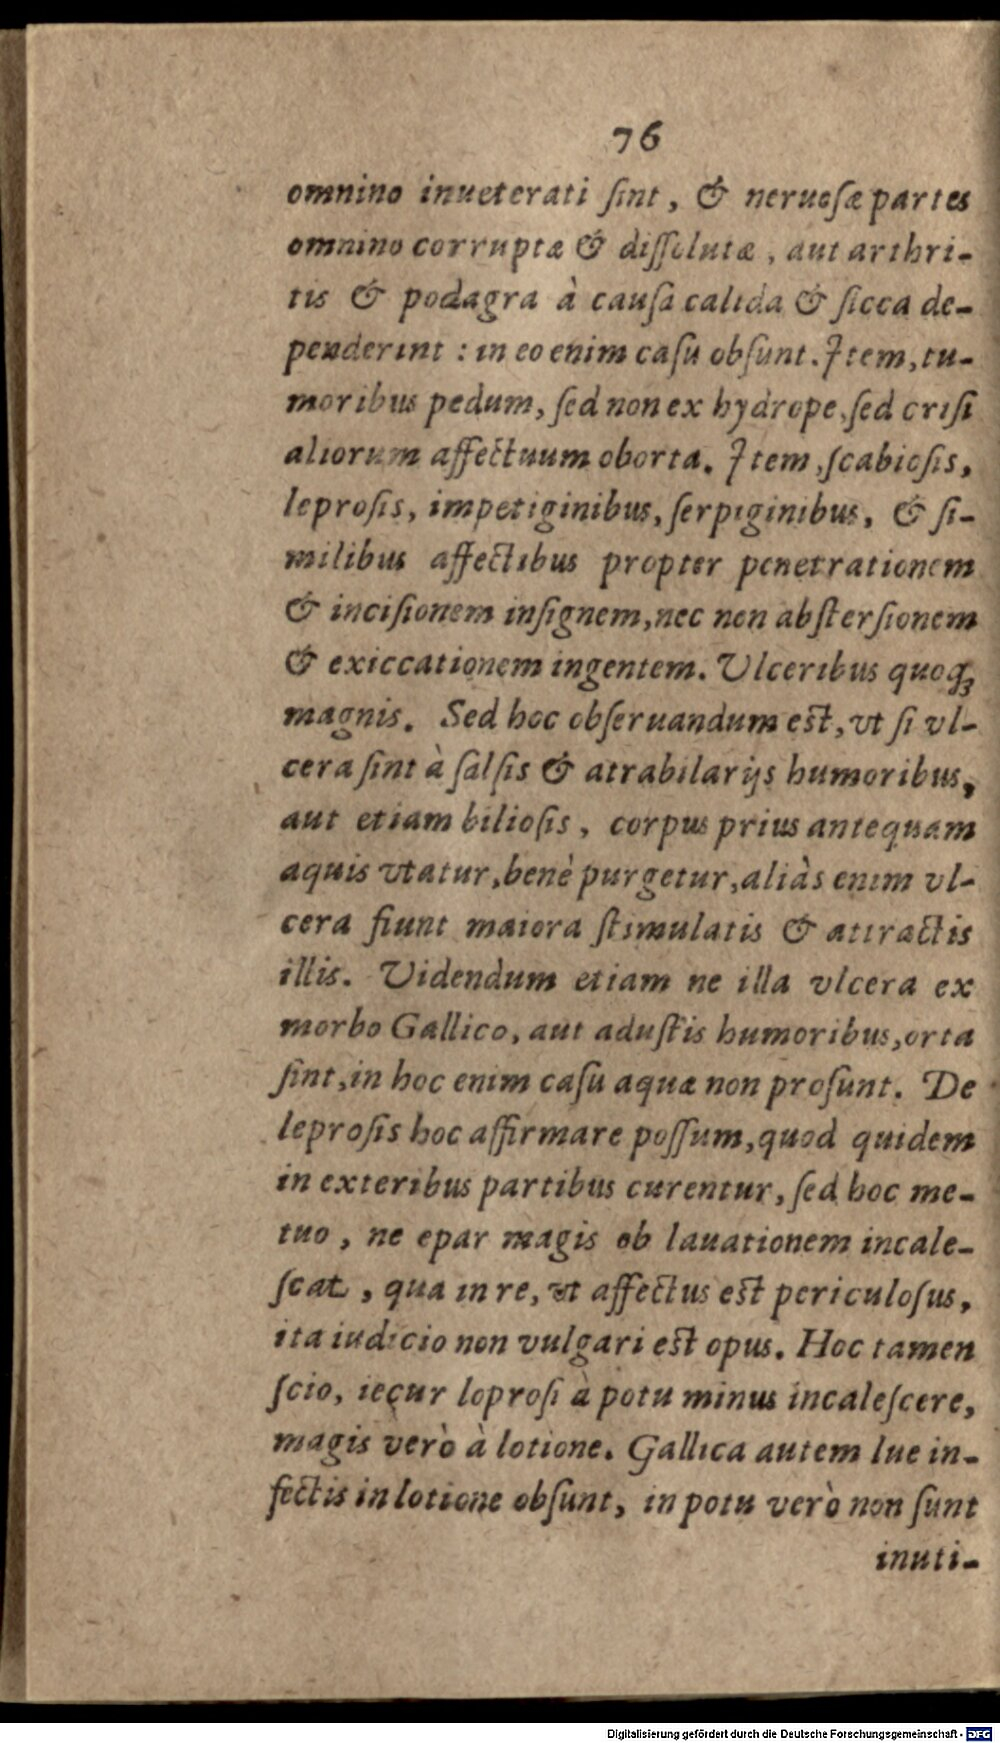 76
omnino inueterati ſint, & neruoſæ partes
omnino corruptæ & diſſolutæ, aut arthri-
tis & podagra à cauſa calida & ſicca de-
penderint : in eo enim caſu obſunt. Item, tu-
moribus pedum, ſed non ex hydrope, ſed criſi
aliorum affectuum oborta. Item, ſcabioſis,
leproſis, impetiginibus, ſerpiginibus, & ſi-
milibus affectibus propter penetrationem
& inciſionem inſignem, nec non abſterſionem
& exiccationem ingentem. Vlceribus quoq;
magnis. Sed hoc obſeruandum eſt, vt ſi vl-
cera ſint à ſalſis & atrabilarijs humoribus,
aut etiam bilioſis, corpus prius antequam
aquis vtatur, benè purgetur, aliàs enim vl-
cera fiunt maiora ſtimulatis & attractis
illis. Videndum etiam ne illa vlcera ex
morbo Gallico, aut aduſtis humoribus, orta
ſint, in hoc enim caſu aquæ non proſunt. De
leproſis hoc affirmare poſſum, quod quidem
in exteribus partibus curentur, ſed hoc me-
tuo, ne epar magis ob lauationem incale-
ſcat, qua in re, vt affectus eſt periculoſus,
ita iudicio non vulgari eſt opus. Hoc tamen
ſcio, iecur loproſi à potu minus incaleſcere,
magis verò à lotione. Gallica autem lue in-
fectis in lotione obſunt, in potu verò non ſunt
inuti-
Digitalisierung gefördert durch die Deutsche Forschungsgemeinschaft - DFG